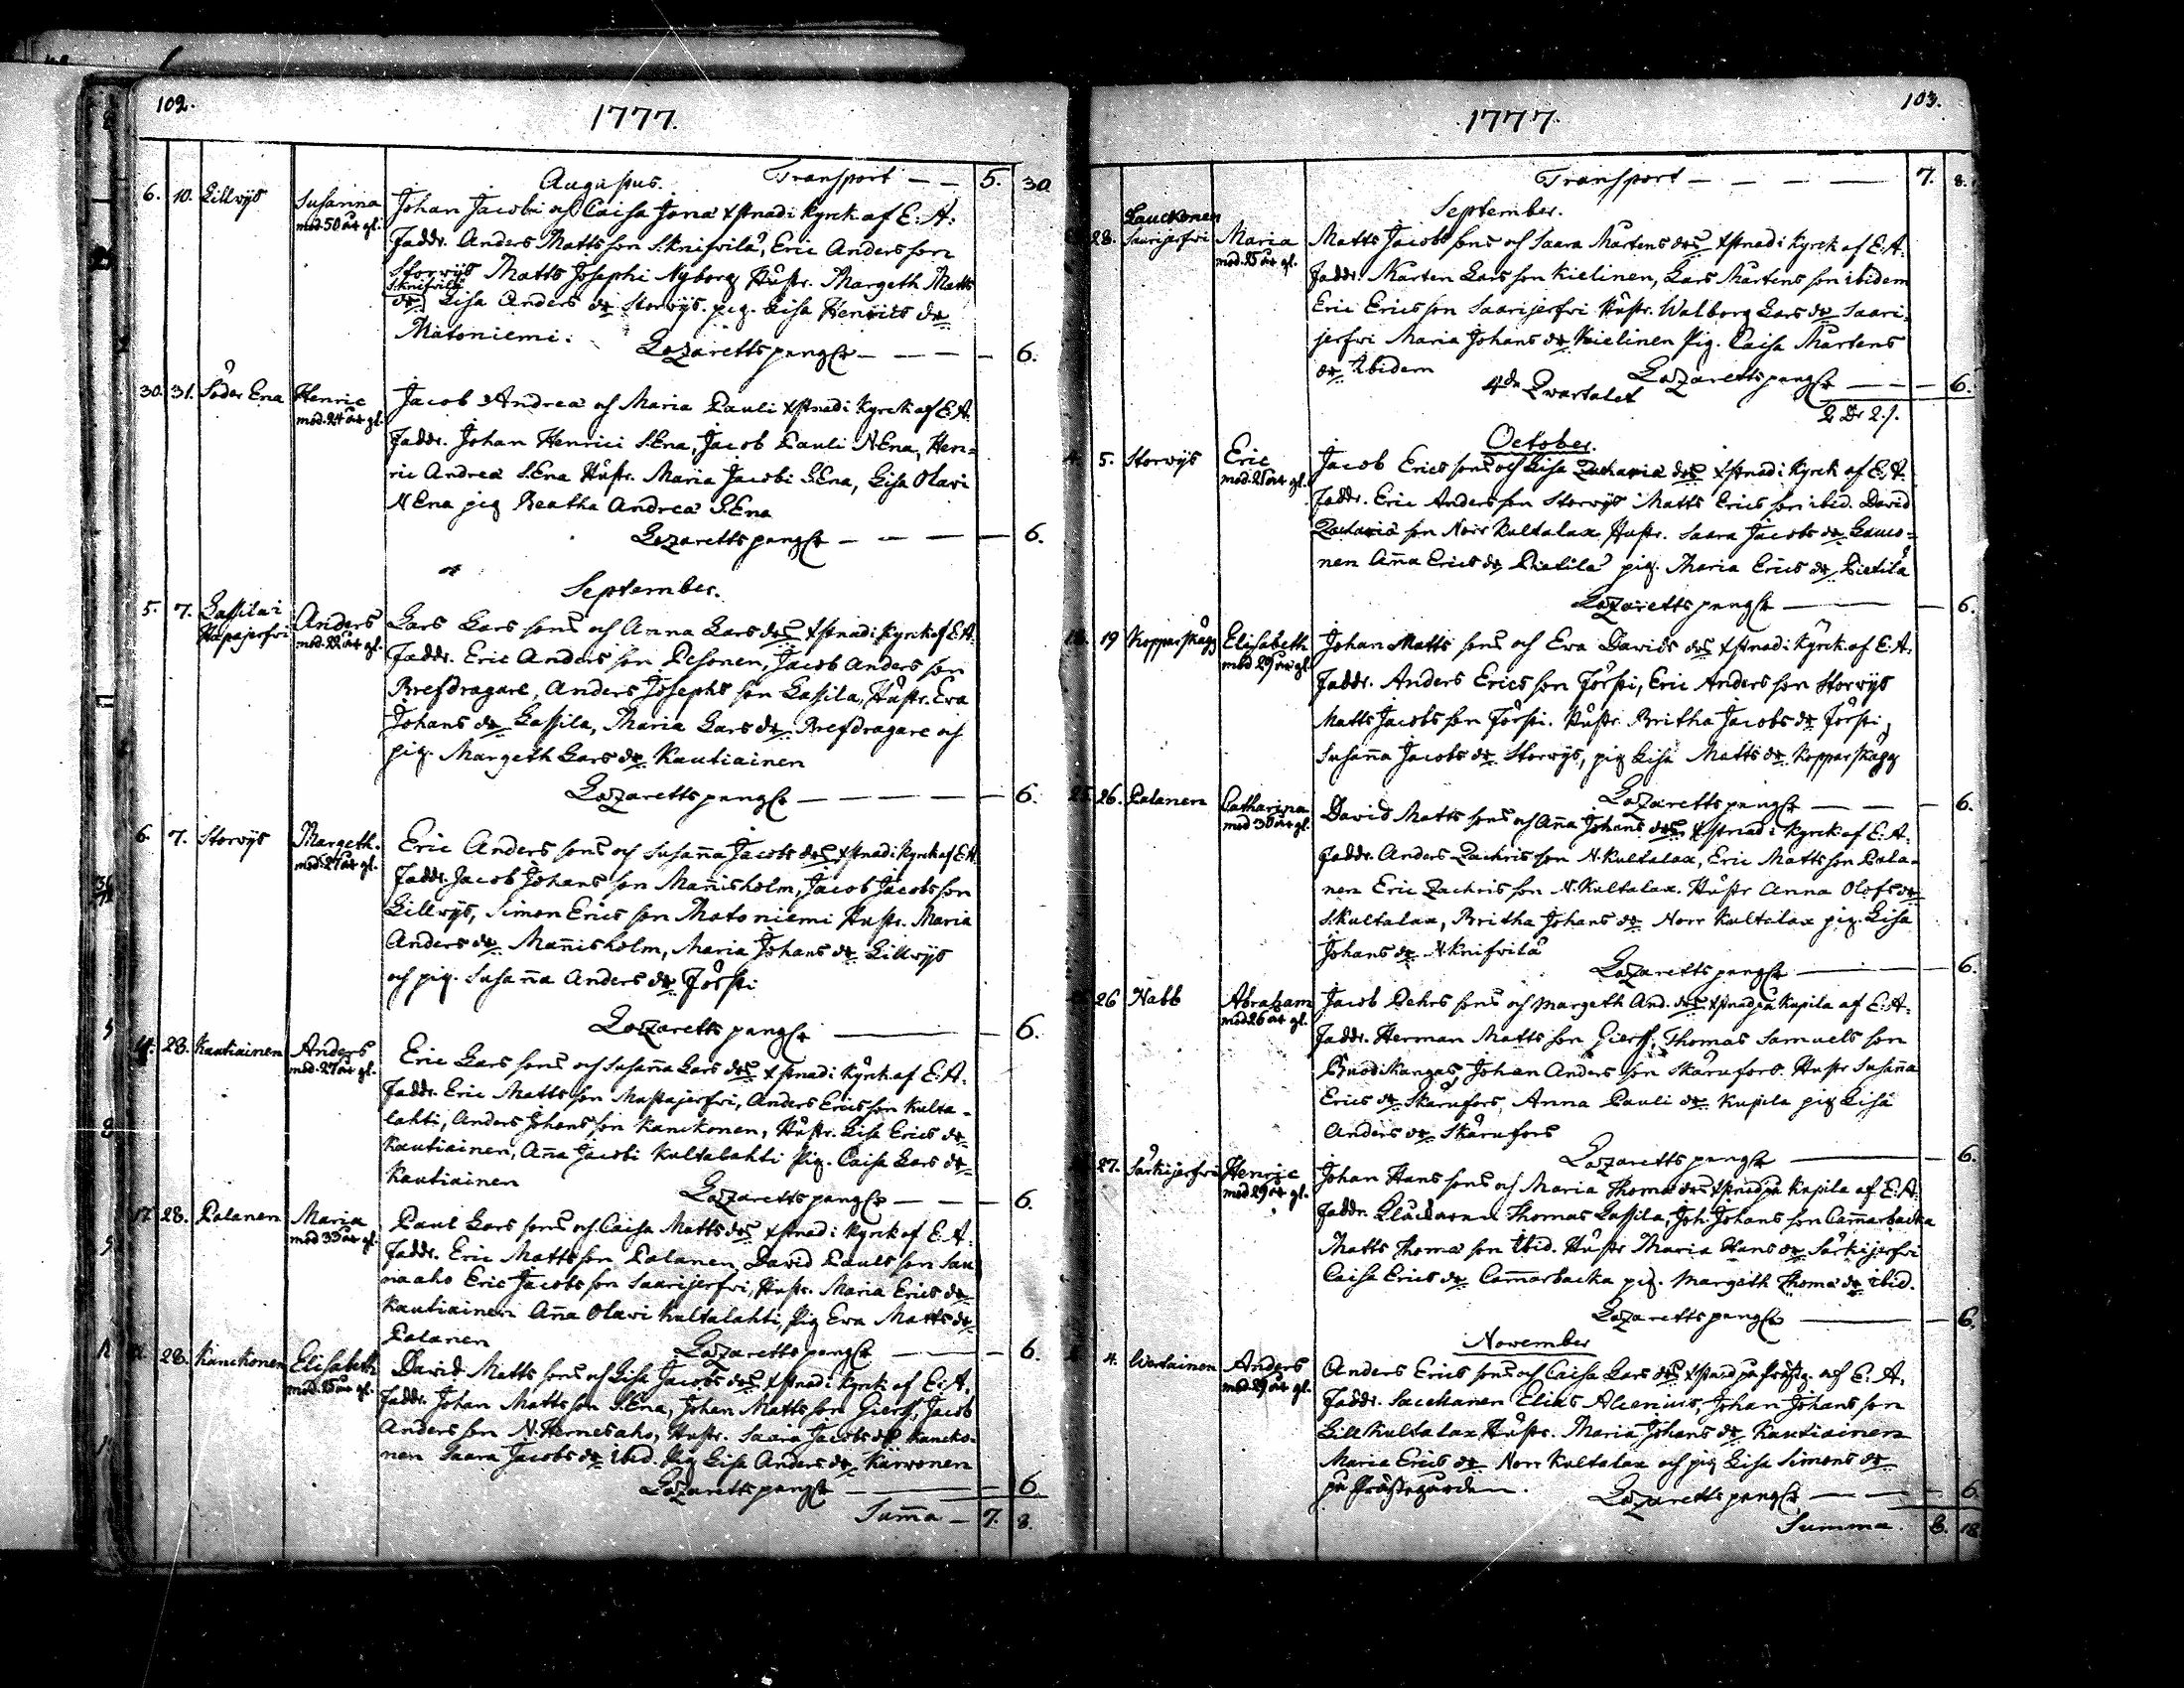 102.
1777.
Augustus. Transport — — 5. 30
6. 10. Lillwijs Susanna Johan Jacobi och Caisa Jonæ xstnad i Kyrck af E: A:
mod. 50 år gl. Faddr. Anders Matts son S.Knifvilä, Eric Anders son
Storwijs Matts Josephi Nyborg Hustr. Margeth Matts
S.Knifvilä
dr Lisa Anders dr Storwijs. pig. Lisa Henrics dr
Matoniemi. Lazaretts pengr — — — — 6.
30. 31. Söder Ena Henric Jacob Andreæ och Maria Pauli xstnad i Kyrck af E: A.
mod. 24 år gl. Faddr. Johan Henrici S.Ena, Jacob Pauli N.Ena, Hen-
ric Andreæ S.Ena Hustr. Maria Jacobi S.Ena, Lisa Olavi
N Ena pig Beatha Andreæ S.Ena
Lazaretts pengr — — — — 6.
September.
5. 7. Lassila i Anders Lars Lars sons och Anna Lars drs xstnad i Kyrck af E: A.
Hapajerfvi mod. 22 år gl. Faddr. Eric Anders son Pesonen, Jacob Anders son
Brefdragare, Anders Josephs son Lassila, Hustr. Eva
Johans dr Lassila, Maria Lars dr Brefdragare och
pig. Margeth Lars dr Kautiainen
Lazaretts pengr — — — — 6.
6. 7. Storwijs Margeth. Eric Anders sons och Susanna Jacobs drs xstnad i Kyrck af E: A.
mod. 27 år gl. Faddr. Jacob Johans son Mannisholm, Jacob Jacobs son
Lillwijs, Simon Erics son Matoniemi Hustr. Maria
Anders dr Mannisholm, Maria Johans dr Lillwijs
och pig. Susanna Anders dr Försti
Lazaretts pengr — — 6.
14. 28. Kautiainen Anders Eric Lars sons och Susanna Lars drs xstnad i Kyrck. af E: A.
mod. 27 år gl. Faddr. Eric Matts son Mustajerfvi, Anders Erics son Kulta-
lahti, Anders Johans son Kanckonen, Hustr. Lisa Erics dr
Kautiainen, Anna Jacobi Kultalahti Pig. Caisa Lars dr
Kautiainen Lazaretts pengr — — — 6.
17. 28. Palanen Maria Paul Lars sons och Caisa Matts drs xstnad i Kyrck af E: A.
mod 33 år gl. Faddr. Eric Matts son Palanen, David Pauls son Sau
na aho Eric Jacobs son Saarijerfvi, Hustr. Maria Erics dr
Kautiainen Anna Olavi Kultalahti, Pig Eva Matts dr
Palanen Lazaretts pengr — — 6.
28. Kanckonen Elisabeth David Matts sons och Lisa Jacobs drs xstnad i Kyrck af E: A.
mod. 25 år gl. Faddr. Johan Matts son S.Ena, Johan Matts son Giers, Jacob
Anders son N. Hernesaho, Hustr. Saara Jacobs dr Kancko-
nen Saara Jacobs dr ibid. Pig Lisa Anders dr Karvonen
Lazaretts pengr — — 6.
Summa — 7. 8.
103.
1777.
Transport — — — — 7. 8.
September.
Lauckonen
28. Saarijerfvi Maria Matts Jacobs sons och Saara Mårtens drs xstnad i Kyrck af E: A.
mod. 25 år gl. Faddr. Mårten Lars son Kielinen, Lars Mårtens son ibidem
Eric Erics son Saarijerfvi Hustr. Walborg Lars dr Saari-
jerfvi Maria Johans dr Kielinen Pig. Caisa Mårtens
dr Ibidem Lazaretts pengr — — 6.
4de Qvartalet 2 Dr 2 /.
October.
5. Storwijs Eric Jacob Erics sons och Lisa Zachariæ drs xstnad i Kyrck af E: A.
mod. 25 år gl. Faddr. Eric Anders son Storwijs Matts Erics son ibid. David
Zachariæ son Norr Kultalax Hustr. Saara Jacobs dr Lauco-
nen Anna Erics dr Pietilä pig. Maria Erics dr Pietilä
Lazaretts pengr — — 6.
19 Kopparskägg Elisabeth Johan Matts sons och Eva Davids drs xstnad i Kyrck. af E: A.
mod 29 år gl. Faddr. Anders Erics son Försti, Eric Anders son Storwijs
Matts Jacobs son Försti. Hustr. Britha Jacobs dr Försti,
Susanna Jacobs dr Storwijs, pig Lisa Matts dr Kopparskägg
Lazaretts pengr — — 6.
25. 26. Palanen Catharina David Matts sons och Anna Johans drs xstnad i Kyrck af E: A.
mod 30 år gl. Faddr. Anders Zachris son N. Kultalax, Eric Matts son Pala-
nen Eric Zachris son N. Kultalax. Hustr Anna Olofs dr
S.Kultalax, Britha Johans dr Norr Kultalax pig. Lisa
Johans dr N.Knifvilä Lazaretts pengr — 6.
26 Nabb Abraham Jacob Pehrs sons och Margeth And. drs xstnad på Kupila af E: A.
mod 26 år gl. Faddr. Herman Matts son Giers, Thomas Samuels son
Ruodikangas, Johan Anders son Skårufors. Hustr Susanna
Erics dr Skårufors, Anna Pauli dr Kupila pig Lisa
Anders dr Skårufors Lazaretts pengr — 6.
27. Särkijerfvi Henric Johan Hans sons och Maria Thomæ drs xstnad på Kupila af E: A.
mod 29 år gl. Faddr. Thomas Lassila, Joh. Johans son Cammarbacka
Matts Thomæ son Ibid. Hustr Maria Hans dr Särkijerfvi
Caisa Erics dr Cammarbacka pig. Margeth Thomæ dr ibid.
Lazaretts pengr — 6.
November
4. Wartainen Anders Anders Erics sons och Caisa Lars drs xstnad på Prästg. af E: A.
mod. 29 år gl. Faddr. Sacellanen Elias Alcenius, Johan Johans son
Lill Kultalax Hustr. Maria Johans dr Kautiainen
Maria Erics dr Norr Kultalax och pig Lisa Simons dr
på Prästegården. Lazaretts pengr — — 6.
Summa. 8. 18